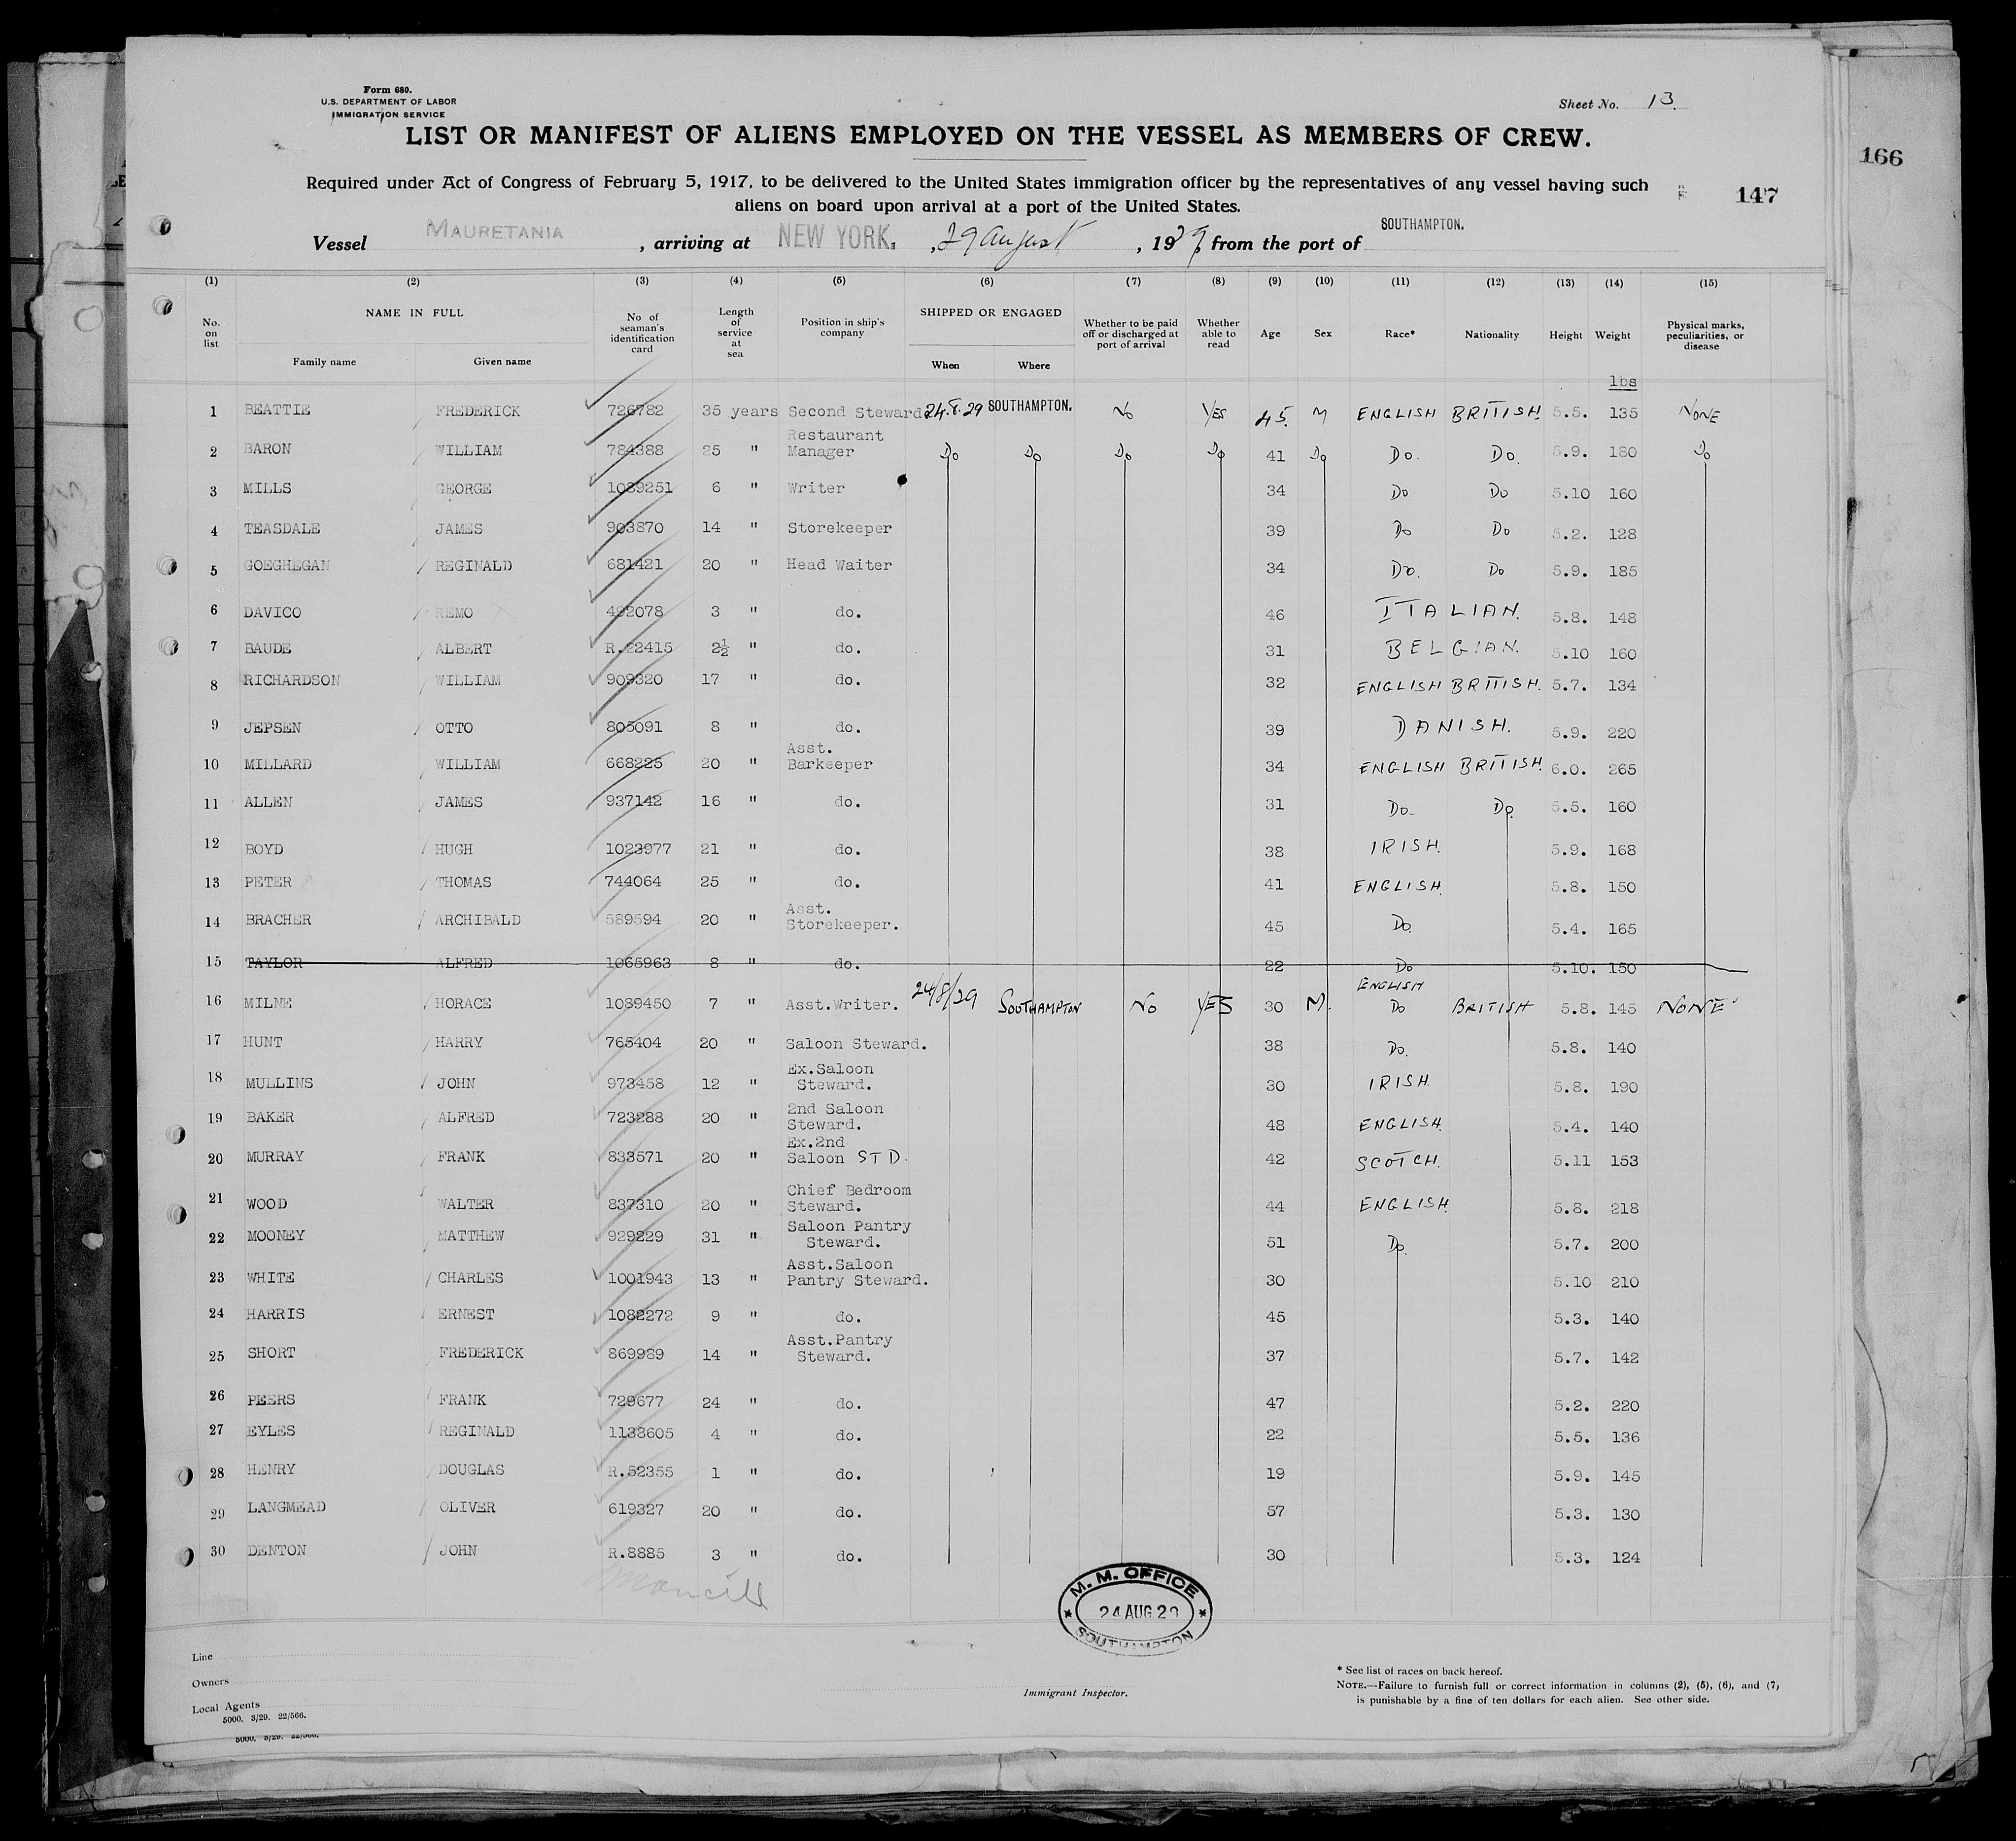 Form 680.
U.S. DEPARTMENT OF LABOR
IMMIGRATION SERVICE
Sheet No. 13.
LIST OR MANIFEST OF ALIENS EMPLOYED ON THE VESSEL AS MEMBERS OF CREW.
166
Required under Act of Congress of February 5, 1917, to be delivered to the United States immigration officer by the representatives of any vessel having such
147
aliens on board upon arrival at a port of the United States.
Vessel MAURETANIA , arriving at NEW YORK. , 29 August , 1929 from the port of SOUTHAMPTON.
(1) (2) (3) (4) (5) (6) (7) (8) (9) (10) (11) (12) (13) (14) (15)
No. on list NAME IN FULL Family name Given name No of seaman's identification card Length of service at sea Position in ship's company SHIPPED OR ENGAGED When Where Whether to be paid off or discharged at port of arrival Whether able to read Age Sex Race* Nationality Height Weight Physical marks, peculiarities, or disease
lbs
1 BEATTIE FREDERICK 726782 35 years Second Steward 24.8.29 SOUTHAMPTON. No YES 45. M ENGLISH BRITISH. 5.5. 135 NONE
2 BARON WILLIAM 784388 25 " Restaurant Manager Do Do Do Do 41 Do Do. Do. 5.9. 180 Do
3 MILLS GEORGE 1039251 6 " Writer 34 Do Do 5.10 160
4 TEASDALE JAMES 903870 14 " Storekeeper 39 Do Do 5.2. 128
5 GOEGHEGAN REGINALD 681421 20 " Head Waiter 34 Do. Do 5.9. 185
6 DAVICO REMO 492078 3 " do. 46 ITALIAN. 5.8. 148
7 BAUDE ALBERT R.22415 2½ " do. 31 BELGIAN. 5.10 160
8 RICHARDSON WILLIAM 909320 17 " do. 32 ENGLISH BRITISH. 5.7. 134
9 JEPSEN OTTO 805091 8 " do. 39 DANISH. 5.9. 220
10 MILLARD WILLIAM 668225 20 " Asst. Barkeeper 34 ENGLISH BRITISH. 6.0. 265
11 ALLEN JAMES 937142 16 " do. 31 Do. Do. 5.5. 160
12 BOYD HUGH 1023977 21 " do. 38 IRISH. 5.9. 168
13 PETER THOMAS 744064 25 " do. 41 ENGLISH. 5.8. 150
14 BRACHER ARCHIBALD 589594 20 " Asst. Storekeeper. 45 Do. 5.4. 165
15 TAYLOR ALFRED 1065963 8 " do. 22 Do 5.10. 150
16 MILNE HORACE 1089450 7 " Asst.Writer. 24/8/29 SOUTHAMPTON No YES 30 M. ENGLISH Do BRITISH 5.8. 145 NONE
17 HUNT HARRY 765404 20 " Saloon Steward. 38 Do. 5.8. 140
18 MULLINS JOHN 973458 12 " Ex.Saloon Steward. 30 IRISH. 5.8. 190
19 BAKER ALFRED 723288 20 " 2nd Saloon Steward. 48 ENGLISH. 5.4. 140
20 MURRAY FRANK 833571 20 " Ex.2nd Saloon STD. 42 SCOTCH. 5.11 153
21 WOOD WALTER 837310 20 " Chief Bedroom Steward. 44 ENGLISH. 5.8. 218
22 MOONEY MATTHEW 929229 31 " Saloon Pantry Steward. 51 Do. 5.7. 200
23 WHITE CHARLES 1001943 13 " Asst.Saloon Pantry Steward. 30 5.10 210
24 HARRIS ERNEST 1082272 9 " do. 45 5.3. 140
25 SHORT FREDERICK 869989 14 " Asst.Pantry Steward. 37 5.7. 142
26 PEERS FRANK 729677 24 " do. 47 5.2. 220
27 EYLES REGINALD 1138605 4 " do. 22 5.5. 136
28 HENRY DOUGLAS R.52355 1 " do. 19 5.9. 145
29 LANGMEAD OLIVER 619327 20 " do. 57 5.3. 130
30 DENTON JOHN R.8885 3 " do. 30 5.3. 124
M. M. OFFICE
24 AUG 29
SOUTHAMPTON
Line
Owners
Local Agents
5000. 3/29. 22/566.
5000. 3/29. 22/566.
Immigrant Inspector.
* See list of races on back hereof.
NOTE.—Failure to furnish full or correct information in columns (2), (5), (6), and (7)
is punishable by a fine of ten dollars for each alien. See other side.